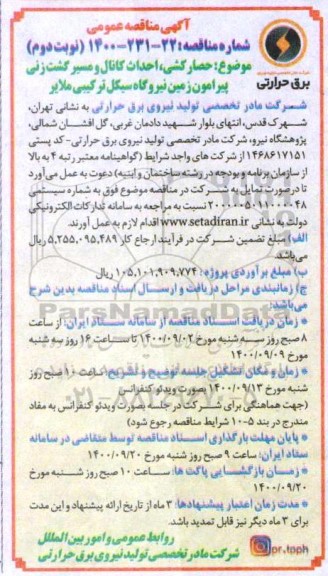 آگهی مناقصه عمومی
شماره مناقصه: ۲۲-۲۳۱-۱۴۰۰ (نوبت دوم)
موضوع: حصارکشی، احداث کانال و مسیر گشت زنی
پیرامون زمین نیروگاه سیکل ترکیبی ملایر
برق حرارتی
شرکت مادر تخصصی تولید نیروی برق حرارتی به نشانی تهران،
شهرک قدس، انتهای بلوار شهید دادمان غربی، گل افشان شمالی،
پژوهشگاه نیرو، شرکت مادر تخصصی تولید نیروی برق حرارتی - کد پستی
۱۴۶۸۶۱۷۱۵۱ از شرکت های واجد شرایط (گواهینامه معتبر رتبه ۴ به بالا
از سازمان برنامه و بودجه در رشته ساختمان و ابنیه) دعوت به عمل می‌آورد
تا درصورت تمایل به شرکت در مناقصه موضوع فوق به شماره سیستمی
نسبت به مراجعه به سامانه تدارکات الکترونیکی
دولت به نشانی www.setadiran.ir اقدام لازم به عمل آورند.
الف) مبلغ تضمین شرکت در فرآیند ارجاع کار ۵،۲۵۵،۰۹۵،۴۸۹ ریال
می‌باشد.
ب) مبلغ برآوردی پروژه: ۱۰۵،۱۰۱،۹۰۹،۷۷۴ ریال
ج) زمانبندی مراحل دریافت و ارسال اسناد مناقصه بدین شرح
می‌باشد:
* زمان دریافت اسناد مناقصه از سامانه ستاد ایران: از ساعت
۸ صبح روز سه شنبه مورخ ۱۴۰۰/۰۹/۰۲ تا ساعت ۱۶ روز سه شنبه
مورخ ۱۴۰۰/۰۹/۰۹
* زمان و مکان تشکیل جلسه توضیح و تشریح: ساعت ۱۰ صبح روز
شنبه مورخ ۱۴۰۰/۰۹/۱۳ بصورت ویدئو کنفرانس
(جهت هماهنگی برای شرکت در جلسه بصورت ویدئو کنفرانس به مفاد
مندرج در بند ۵-۱۰ شرایط مناقصه رجوع شود)
* پایان مهلت بارگذاری اسناد مناقصه توسط متقاضی در سامانه
ستاد ایران: ساعت ۹ صبح روز شنبه مورخ ۱۴۰۰/۰۹/۲۰
* زمان بازگشایی پاکت ها: ساعت ۱۰ صبح روز شنبه مورخ
۱۴۰۰/۰۹/۲۰
* مدت زمان اعتبار پیشنهادها: ۳ ماه از تاریخ ارائه پیشنهاد و این مدت
برای ۳ ماه دیگر نیز قابل تمدید باشد.
روابط عمومی و امور بین الملل
شرکت مادر تخصصی تولید نیروی برق حرارتی
pr.tpph
ParsNamadData